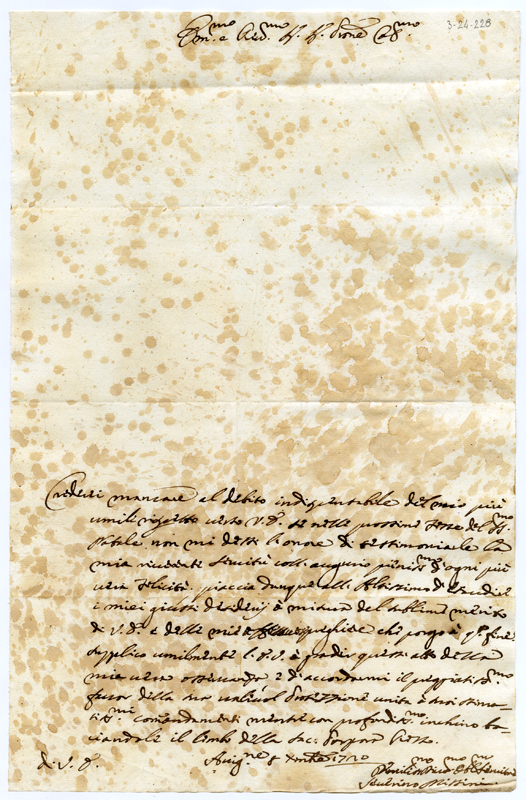 3-24-228
Em.mo e Rev.mo S. S. Prone Col.mo
Crederei mancare al debito indispensabile del mio più
umile rispetto verso V. E. se nelle prossime Feste del SS.mo
Natale non mi dassi l'onore di testimoniarle la
mia riverente servitù coll' augurio pienis.mo d'ogni più
vera felicità. piaccia dunque all' Altissimo di esaudire
i miei giusti desiderij à misura del sublime merito
di V. E. e delle mie preghiere che porgo à q.o fine
supplico umilmente l' E. V. à gradir questo atto della
mia vera osservanza, e di accordarmi il pregiatis.mo
favor della sua valevol Protezzione unita à suoi stima-
tiss.mi comandamenti mentre con profondis.mo inchino ba-
ciandole il lembo della Sac. Porpora resto.
di V. E.
Avig.ne 8 Xmbre 1720